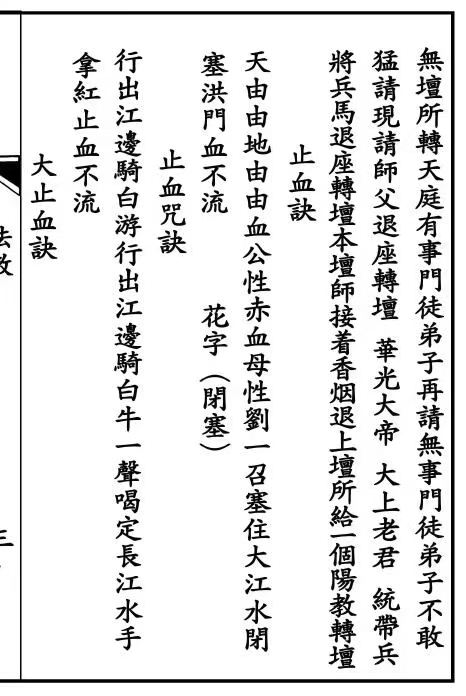 無壇所轉天庭有事門徒弟子再請無事門徒弟子不敢
猛請現請師父退座轉壇　華光大帝　大上老君　統帶兵
將兵馬退座轉壇本壇師接着香烟退上壇所給一個陽教轉壇
止血訣
天由由地由由血公性赤血母性劉一召塞住大江水閉
塞洪門血不流　　　花字（閉塞）
止血咒訣
行出江邊騎白游行出江邊騎白牛一聲喝定長江水手
拿紅止血不流
大止血訣